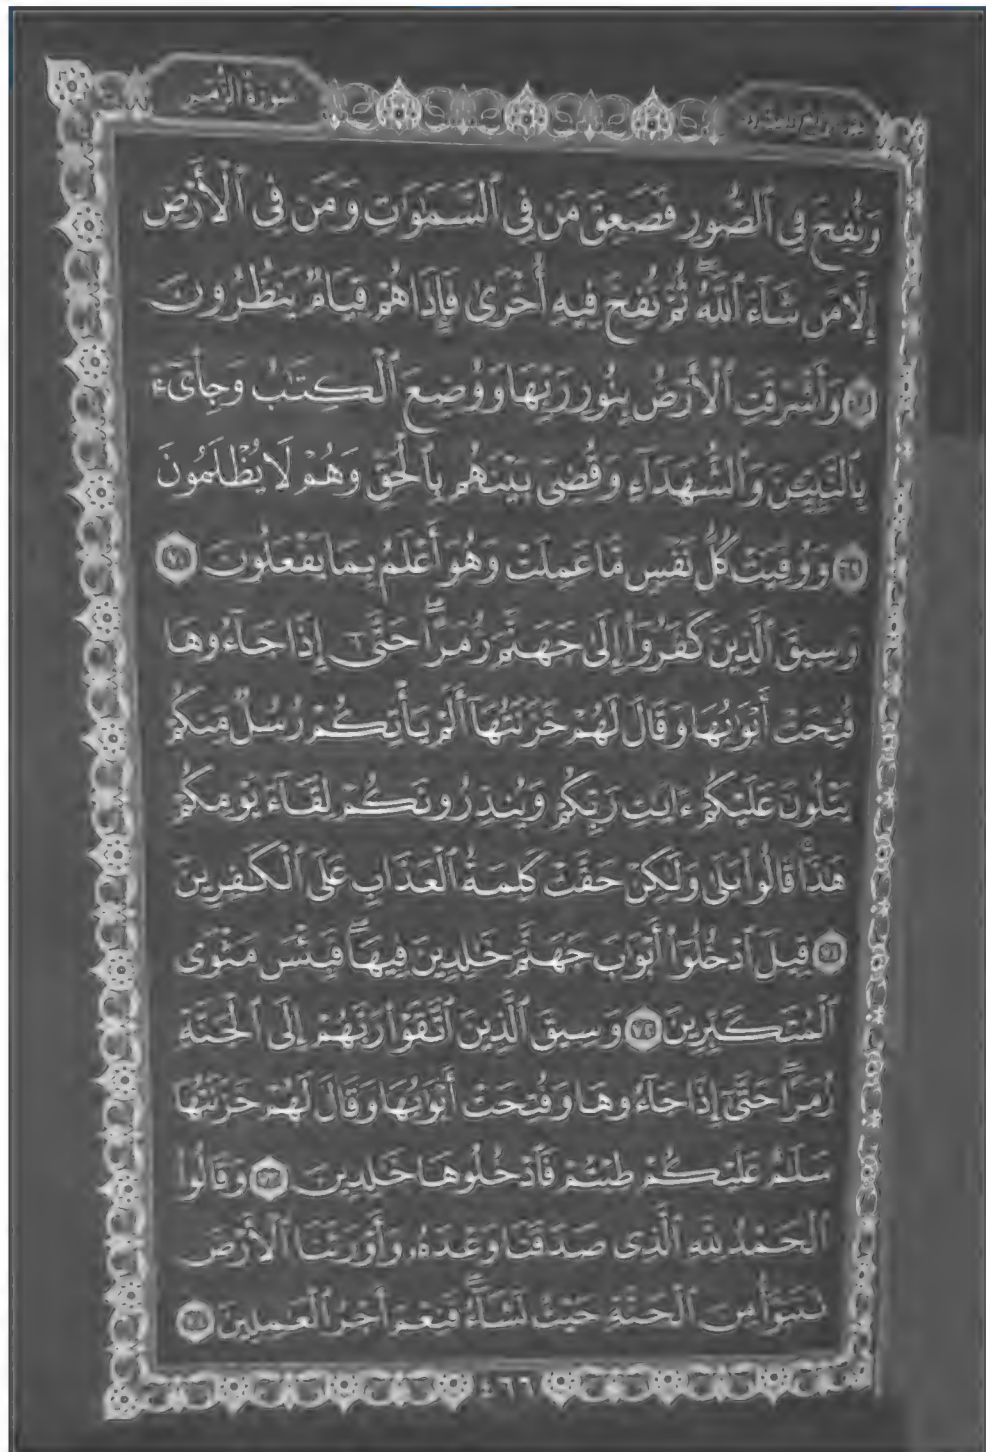 سُورَةُ الزُّمَرِ
وَنُفِخَ فِي ٱلصُّورِ فَصَعِقَ مَن فِي ٱلسَّمَٰوَٰتِ وَمَن فِي ٱلْأَرْضِ
إِلَّا مَن شَآءَ ٱللَّهُ ۖ ثُمَّ نُفِخَ فِيهِ أُخْرَىٰ فَإِذَا هُمْ قِيَامٌ يَنظُرُونَ
٦٨ وَأَشْرَقَتِ ٱلْأَرْضُ بِنُورِ رَبِّهَا وَوُضِعَ ٱلْكِتَٰبُ وَجِا۟ىٓءَ
بِٱلنَّبِيِّـۧنَ وَٱلشُّهَدَآءِ وَقُضِيَ بَيْنَهُم بِٱلْحَقِّ وَهُمْ لَا يُظْلَمُونَ
٦٩ وَوُفِّيَتْ كُلُّ نَفْسٍ مَّا عَمِلَتْ وَهُوَ أَعْلَمُ بِمَا يَفْعَلُونَ ٧٠
وَسِيقَ ٱلَّذِينَ كَفَرُوٓا۟ إِلَىٰ جَهَنَّمَ زُمَرًا ۖ حَتَّىٰٓ إِذَا جَآءُوهَا
فُتِحَتْ أَبْوَٰبُهَا وَقَالَ لَهُمْ خَزَنَتُهَآ أَلَمْ يَأْتِكُمْ رُسُلٌ مِّنكُمْ
يَتْلُونَ عَلَيْكُمْ ءَايَٰتِ رَبِّكُمْ وَيُنذِرُونَكُمْ لِقَآءَ يَوْمِكُمْ
هَٰذَا ۚ قَالُوا۟ بَلَىٰ وَلَٰكِنْ حَقَّتْ كَلِمَةُ ٱلْعَذَابِ عَلَى ٱلْكَٰفِرِينَ
٧١ قِيلَ ٱدْخُلُوٓا۟ أَبْوَٰبَ جَهَنَّمَ خَٰلِدِينَ فِيهَا ۖ فَبِئْسَ مَثْوَى
ٱلْمُتَكَبِّرِينَ ٧٢ وَسِيقَ ٱلَّذِينَ ٱتَّقَوْا۟ رَبَّهُمْ إِلَى ٱلْجَنَّةِ
زُمَرًا ۖ حَتَّىٰٓ إِذَا جَآءُوهَا وَفُتِحَتْ أَبْوَٰبُهَا وَقَالَ لَهُمْ خَزَنَتُهَا
سَلَٰمٌ عَلَيْكُمْ طِبْتُمْ فَٱدْخُلُوهَا خَٰلِدِينَ ٧٣ وَقَالُوا۟
ٱلْحَمْدُ لِلَّهِ ٱلَّذِي صَدَقَنَا وَعْدَهُۥ وَأَوْرَثَنَا ٱلْأَرْضَ
نَتَبَوَّأُ مِنَ ٱلْجَنَّةِ حَيْثُ نَشَآءُ ۖ فَنِعْمَ أَجْرُ ٱلْعَٰمِلِينَ ٧٤
٤٦٦